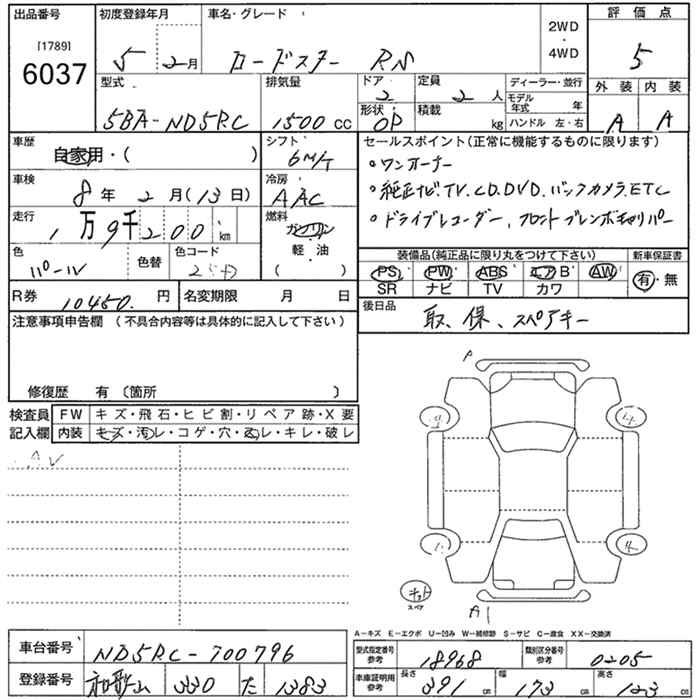 出品番号 初度登録年月 車名・グレード 2WD・4WD 評価点
[1789]
6037 5年2月 ロードスター RS 5
型式 排気量 ドア 定員 ディーラー・並行 外装 内装
2 2人 モデル年式 年
5BA-ND5RC 1500cc 形状 OP 積載 kg ハンドル 左・右 A A
車歴 自家用・( ) シフト 6M/T セールスポイント(正常に機能するものに限ります)
・ワンオーナー
車検 8年2月(13日) 冷房 AAC ・純正ナビ.TV.CD.DVD.バックカメラ.ETC
走行 1万9千200km 燃料 ガソリン・軽・油 ( ) ・ドライブレコーダー、フロントブレンボキャリパー
色 パール 色替 色コード 装備品(純正品に限り丸をつけて下さい) 新車保証書
PS PW ABS エアB AW 有・無
SR ナビ TV カワ
R券 10450.円 名変期限 月 日 後日品 取、保、スペアキー
注意事項申告欄(不具合内容等は具体的に記入して下さい)
修復歴 有 〔箇所 〕
検査員記入欄 FW キズ・飛石・ヒビ割・リペア跡・X要
内装 キズ・汚レ・コゲ・穴・スレ・キレ・破レ
A
キット
スペア
A1
A-キズ E-エクボ U-凹み W-補修跡 S-サビ C-腐食 XX-交換済
車台番号 ND5RC-700796 型式指定番号 参考 18968 類別区分番号 参考 0205
登録番号 和歌山 330 た 1383 車庫証明用 参考 長さ 391cm 幅 173cm 高さ 123cm